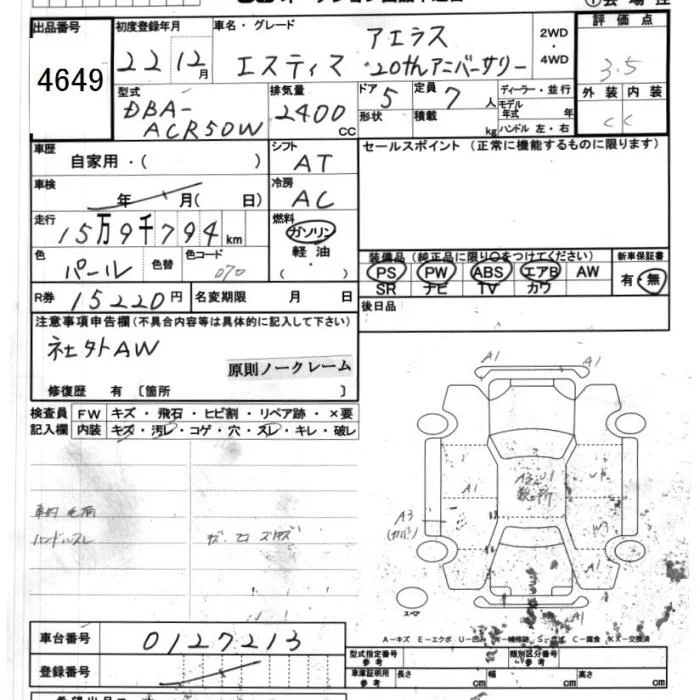 出品番号
4649
初度登録年月
22 12月
車名・グレード
アエラス
エスティマ 20thアニバーサリー
2WD
・
4WD
評価点
3.5
外装 内装
C C
型式
DBA-
ACR50W
排気量
2400
CC
ドア
5
形状
定員
7人
積載
kg
ディーラー・並行
モデル
年式 年
ハンドル 左・右
車歴
自家用・( )
シフト
AT
セールスポイント (正常に機能するものに限ります)
車検
年 月( 日)
冷房
AC
走行
15万9千794km
燃料
ガソリン
軽油・
( )
色
パール
色替
色コード
070
装備品(純正品に限り○をつけてください)
PS PW ABS エアB AW
SR ナビ TV カワ
新車保証書
有・無
R券
15220円
名変期限 月 日
後日品
注意事項申告欄(不具合内容等は具体的に記入して下さい)
社外AW
原則ノークレーム
修復歴 有 〔箇所 〕
検査員
記入欄
FW キズ・飛石・ヒビ割・リペア跡・×要
内装 キズ・汚レ・コゲ・穴・スレ・キレ・破レ
ハンドルスレ
A1
A1
A1
A3
W3
A1
スペア
A－キズ E－エクボ U－凹ミ W－補修跡 S－サビ C－腐食 XX－交換済
車台番号
0127213
登録番号
型式指定番号
参考
類別区分番号
参考
車庫証明用
参考
長さ cm
幅 cm
高さ cm